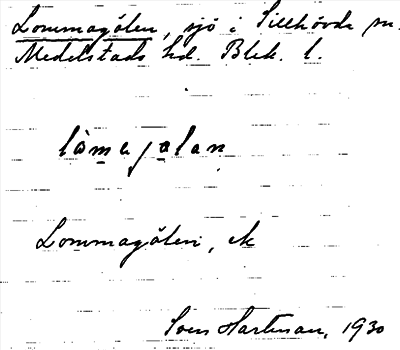 Lommagölen, sjö i Sillhövda sn.
Medelstads hd. Blek. l.
Lommagölen, ek
Sven Hartman, 1930